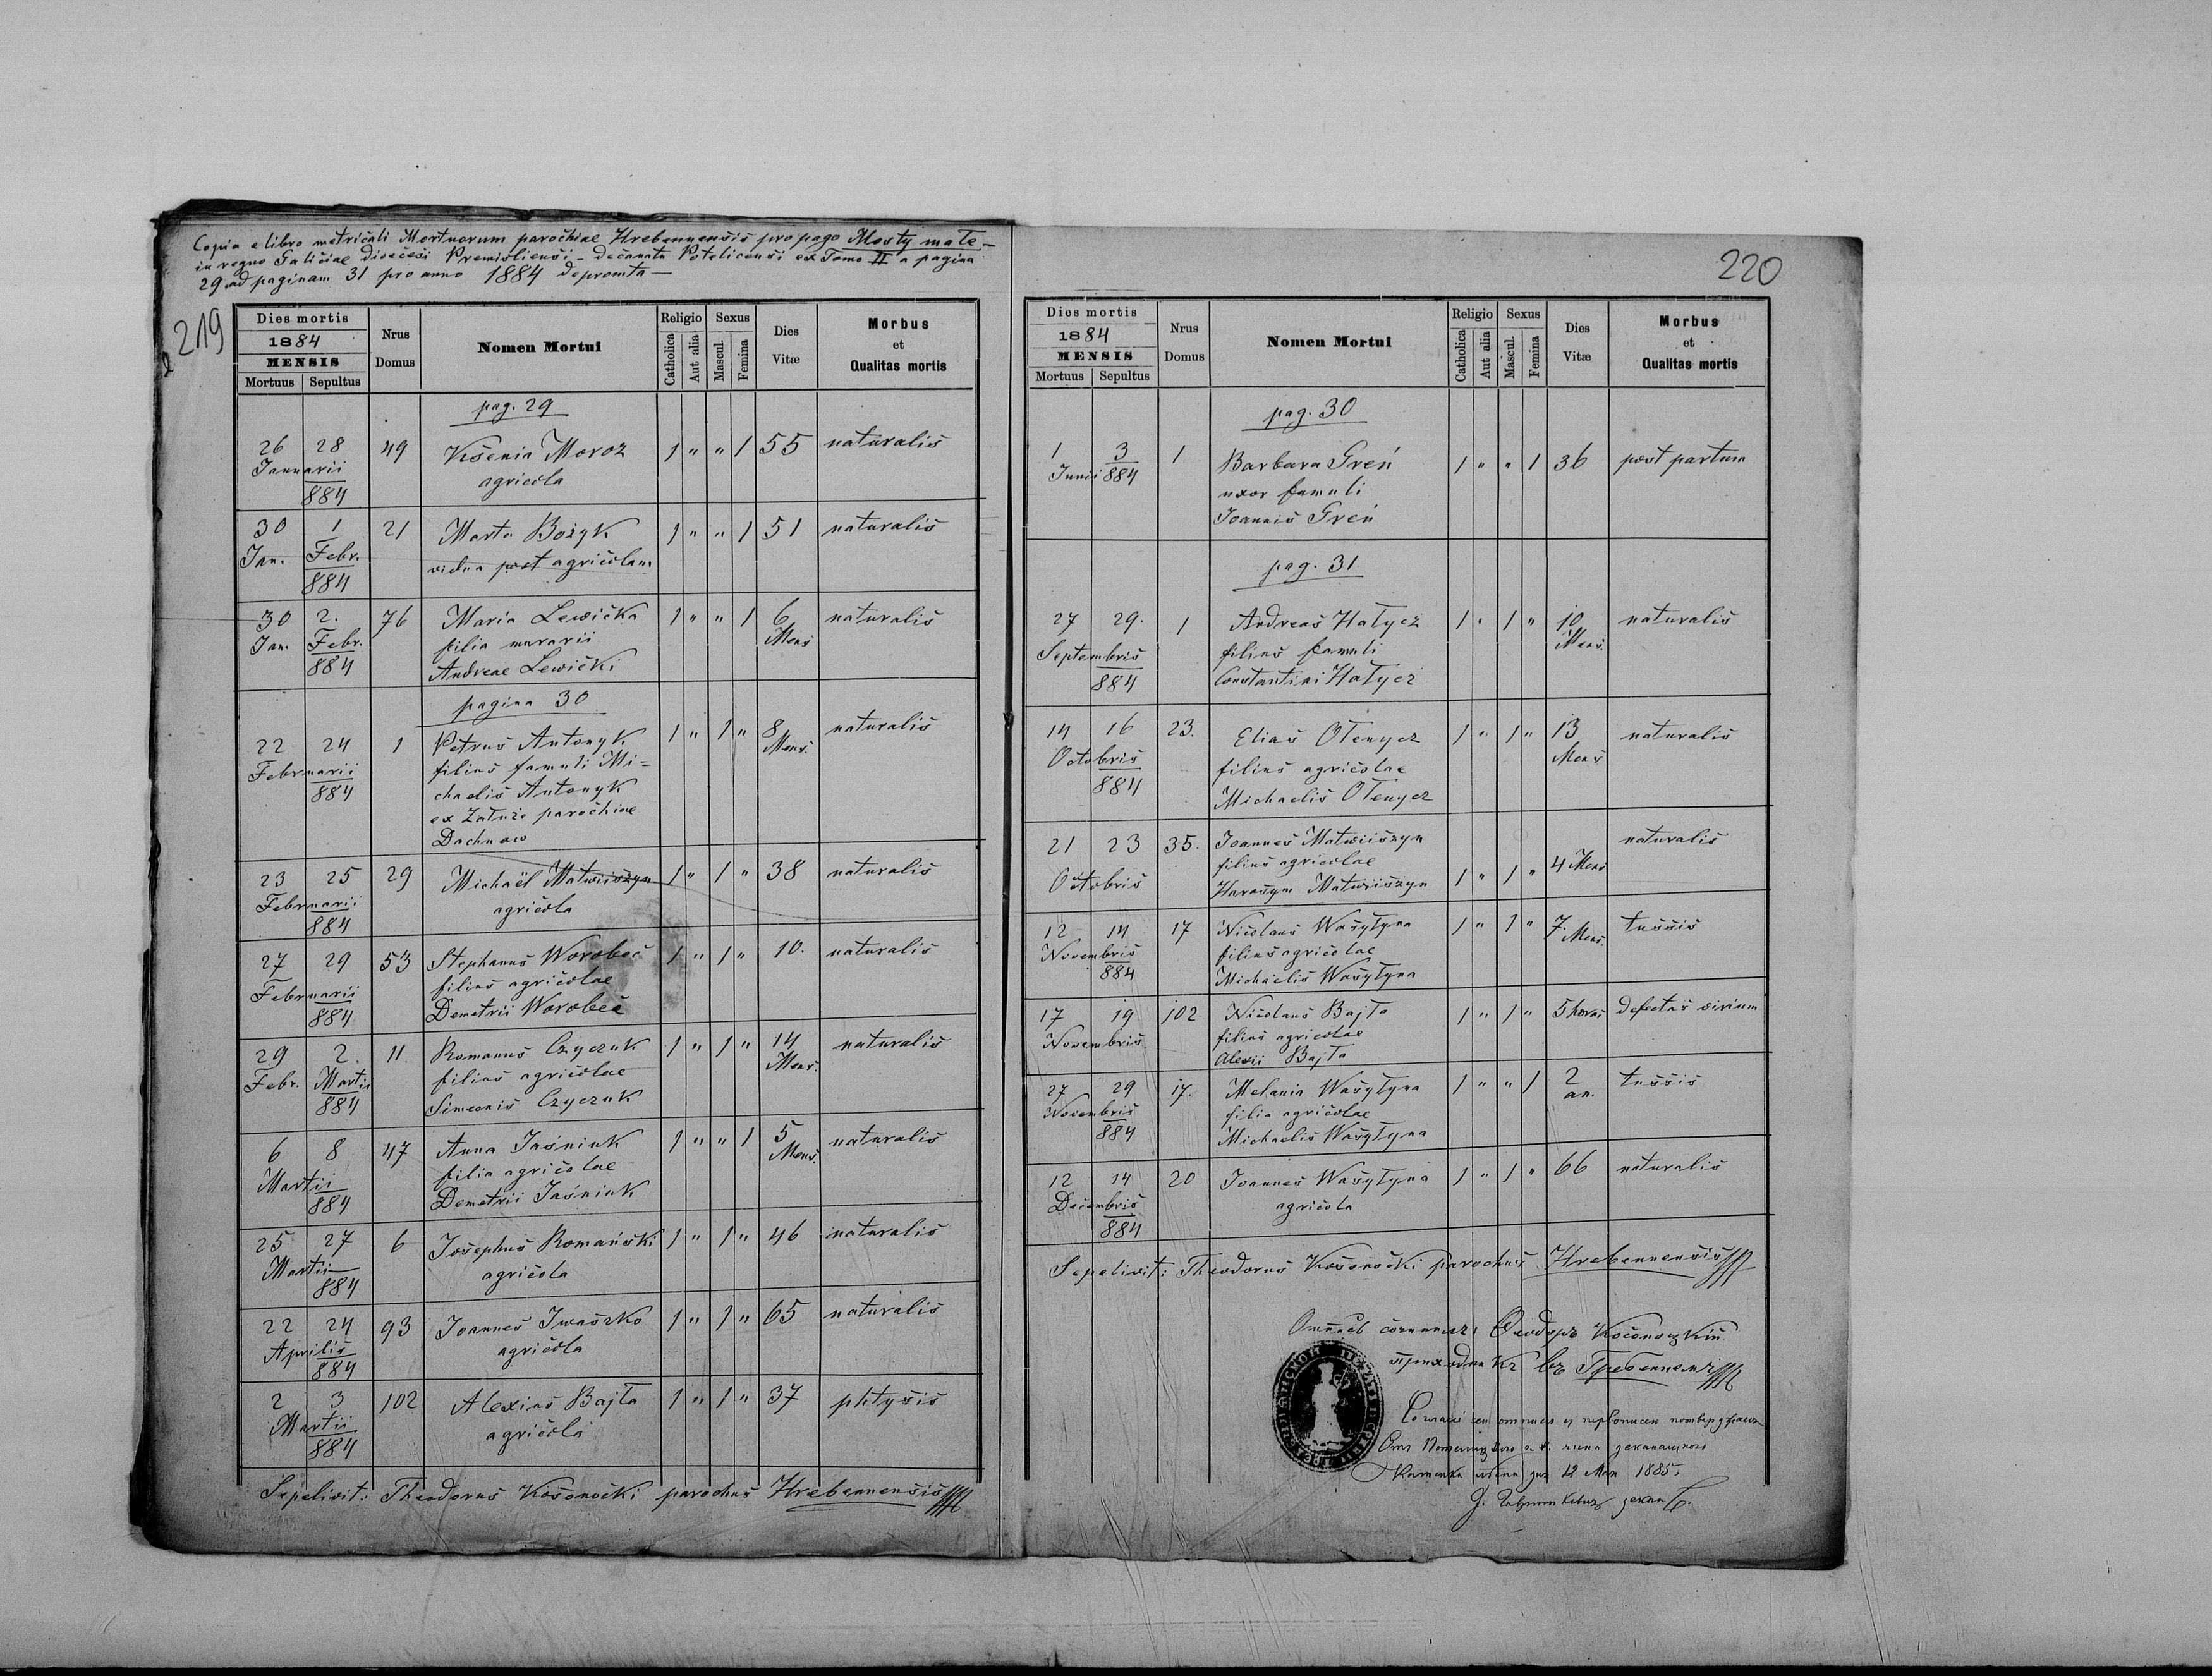 Copia e libro metricali Mortuorum parochiae Hrebennensis pro pago Mosty małe –
in regno Galiciae diocčesi Premisliensi – decanatu Potelicensi ex Tomo II a pagina
29 ad paginam 31 pro anno 1884 depromta –
219
Dies mortis
1884
MENSIS
Mortuus Sepultus
Nrus Domus
Nomen Mortui
Religio
Catholica
Aut alia
Sexus
Mascul.
Femina
Dies Vitæ
Morbus
et
Qualitas mortis
pag. 29
26 28 49 Kšenia Moroz 1 " " 1 55 naturalis
Januarii agricola
884
30 1 21 Marta Bożyk 1 " " 1 51 naturalis
Jan. Febr. vidua post agricolam
884
30 2. 76 Maria Lewicka 1 " " 1 6 naturalis
Jan. Febr. filia murarii Mens
884 Andreae Lewicki
pagina 30
22 24 1 Petrus Antonyk 1 " 1 " 8 naturalis
Februarii filius famuli Mi= Mens.
884 chaelis Antonyk
ex Załuże parochiae
Dachnow
23 25 29 Michaël Matwiiszyn 1 " 1 " 38 naturalis
Februarii agricola
884
27 29 53 Stephanus Worobec 1 " 1 " 10. naturalis
Februarii filius agricolae
884 Demetrii Worobec
29 2. 11. Romanus Czyczuk 1 " 1 " 14 naturalis
Febr. Martii filius agricolae Mens.
884 Simeonis Czyczuk
6 8 47 Anna Jaśniuk 1 " " 1 5 naturalis
Martii filia agricolae Mens.
884 Demetrii Jaśniuk
25 27 6 Josephus Romański 1 " 1 " 46 naturalis
Martii agricola
884
22 24 93 Joannes Iwaszko 1 " 1 " 65 naturalis
Aprilis agricola
884
2 3 102 Alexius Bajła 1 " 1 " 37 phtysis
Martii agricola
884
Sepelivit: Theodorus Kosonocki parochus Hrebennensis
220
Dies mortis
1884
MENSIS
Mortuus Sepultus
Nrus Domus
Nomen Mortui
Religio
Catholica
Aut alia
Sexus
Mascul.
Femina
Dies Vitæ
Morbus
et
Qualitas mortis
pag. 30
1 3 1 Barbara Greń 1 " " 1 36 post partum
Junii 884 uxor famuli
Joannis Greń
pag. 31
27 29. 1 Andreas Hałycz 1 " 1 " 10 naturalis
Septembris filius famuli Mens.
884 Constantini Hałycz
14 16 23. Elias Ołenycz 1 " 1 " 13 naturalis
Octobris filius agricolae Mens
884 Michaelis Ołenycz
21 23 35. Joannes Matwiiszyn naturalis
filius agricolae
Octobris Harasym Matwiiszyn 1 " 1 " 4 Mens
12 14 17 Nicolaus Wasyłyna 1 " 1 " 7. Mens. tussis
Novembris filius agricolae
884 Michaelis Wasyłyna
17 19 102 Nicolaus Bajła 1 " 1 " 5 horas defectas virium
Novembris filius agricolae
Alexii Bajła
27 29 17. Melania Wasyłyna 1 " " 1 2 tussis
Novembris filia agricolae an.
884 Michaelis Wasyłyna
12 14 20 Joannes Wasyłyna 1 " 1 " 66 naturalis
Decembris agricola
884
Sepelivit: Theodorus Kosonocki parochus Hrebennensis
Ѳеодоръ Косоноцкій
приходникъ въ Гребенномъ
дня 12 Мая 1885.
декан